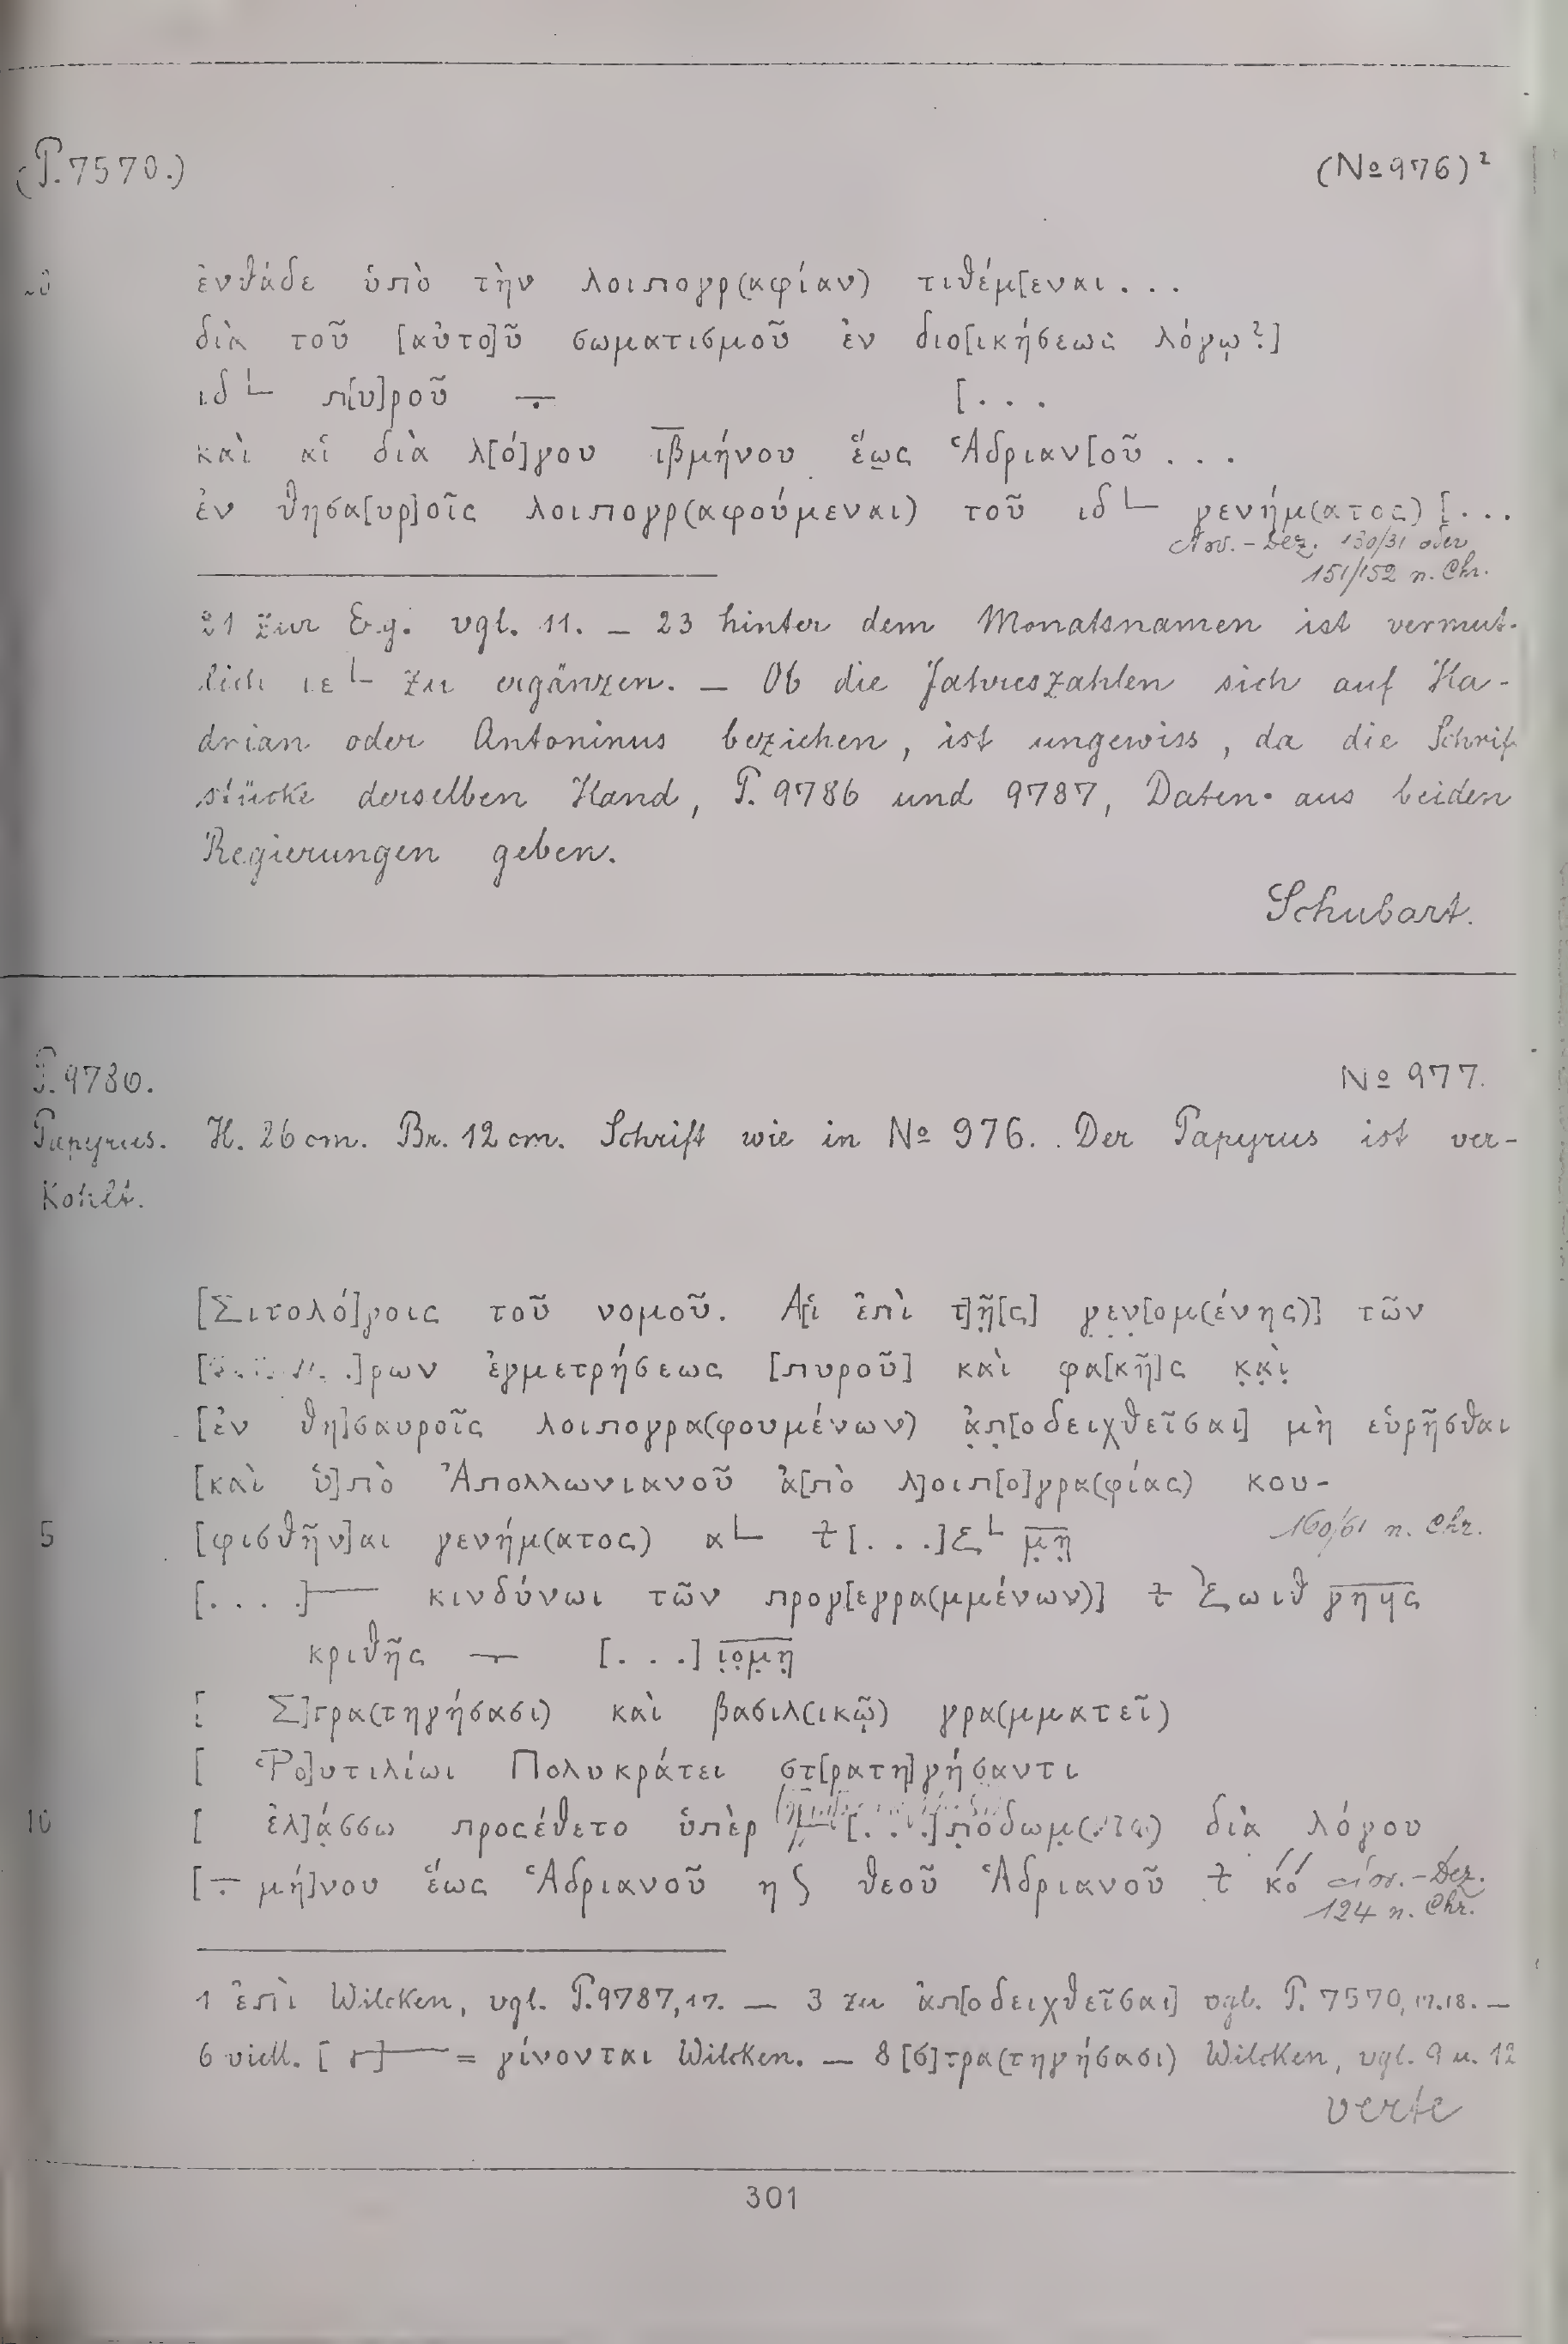 (P.7570.) (No 976)²
20 ἐνθάδε ὑπὸ τὴν λοιπογρ(αφίαν) τιθέμ[εναι...
διὰ τοῦ [αὐτο]ῦ σωματισμοῦ ἐν διο[ικήσεως λόγῳ?]
ιδ∟ π[υ]ροῦ ∸ [...
καὶ αἱ διὰ λ[ό]γου ι̅β̅μήνου ἕως Ἁδριαν[οῦ...
ἐν θησα[υρ]οῖς λοιπογρ(αφούμεναι) τοῦ ιδ∟ γενήμ(ατος) [...
Nov.-Dez. 130/31 oder
151/152 n. Chr.
21 zur Erg. vgl. 11. — 23 hinter dem Monatsnamen ist vermut-
lich ιε∟ zu ergänzen. — Ob die Jahreszahlen sich auf Ha-
drian oder Antoninus beziehen, ist ungewiss, da die Schrift-
stücke derselben Hand, P. 9786 und 9787, Daten aus beiden
Regierungen geben.
Schubart.
P.9786. No 977.
Papyrus. H. 26 cm. Br. 12 cm. Schrift wie in No 976. Der Papyrus ist ver-
kohlt.
[Σιτολό]γοις τοῦ νομοῦ. Α[ἱ ἐπὶ τ]ῆ̣[ς] γ̣ε̣ν̣[ομ(ένης)] τῶν
.]ρων ἐγμετρήσεως [πυροῦ] καὶ φα[κῆ]ς κ̣α̣ὶ̣
[ἐν θη]σαυροῖς λοιπογρα(φουμένων) ἀ̣π̣[οδειχθεῖσαι] μὴ εὑρῆσθαι
[καὶ ὑ]πὸ Ἀπολλωνιανοῦ ἀ[πὸ λ]οιπ[ο]γρα(φίας) κου-
5 [φισθῆν]αι γενήμ(ατος) α∟ ⲧ̵[...]ξ∟ μ̣̅η̣̅ 160/61 n. Chr.
[....]— κινδύνωι τῶν προγ[εγρα(μμένων)] ⲧ̵ ͵ξωιθ
κριθῆς ∸ [...] ι̣ο̣μ̣η̣
[ Σ]τρα(τηγήσασι) καὶ βασιλ(ικῷ) γρα(μματεῖ)
[ Ῥο]υτιλίωι Πολυκράτει στ[ρατη]γήσαντι
10 [ ἐλ]ά̣σσω προσέθετο ὑπὲρ [...] διὰ λόγου
[∸ μή]νου ἕως Ἁδριανοῦ η ϛ θεοῦ Ἁδριανοῦ ⲧ̵ κό Nov.-Dez.
124 n. Chr.
1 ἐπὶ Wilcken, vgl. P.9787,17. — 3 zu ἀπ[οδειχθεῖσαι] vgl. P. 7570,17.18. —
6 viell. [ ɤ]— = γίνονται Wilcken. — 8 [σ]τρα(τηγήσασι) Wilcken, vgl. 9 u. 12
verte
301